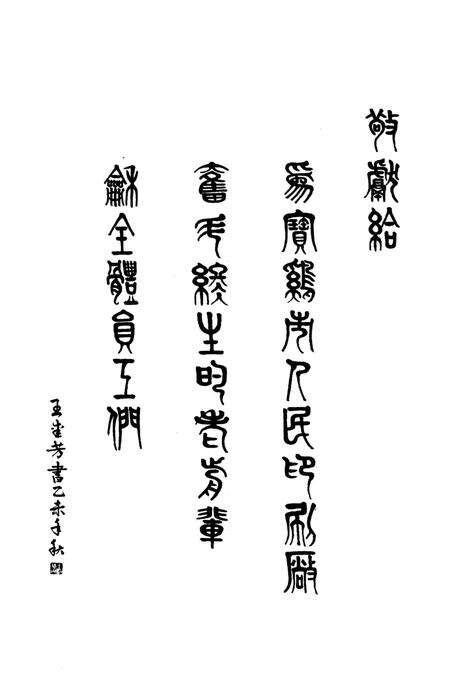 敬獻給
為寶鷄市人民印刷廠
奮斗終生的老前輩
龢全體員工們
王芳書乙未年秋